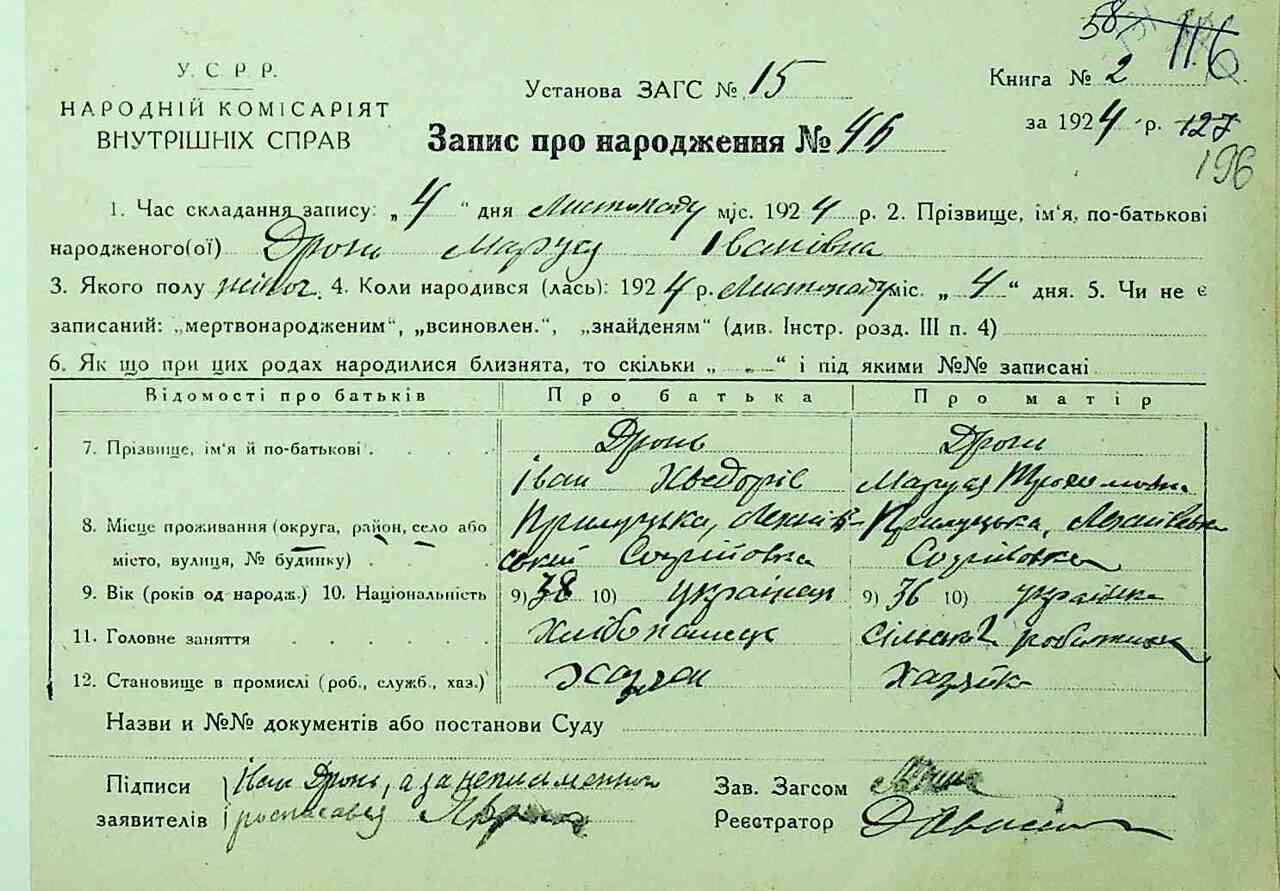 58 116
У. С. Р. Р.
НАРОДНІЙ КОМІСАРІЯТ
ВНУТРІШНІХ СПРАВ
Установа ЗАГС № 15
Книга № 2
Запис про народження № 46
за 1924 р. 127
196
1. Час складання запису: „ 4 “ дня Листопаду міс. 1924 р. 2. Прізвище, ім‘я, по-батькові
народженого(ої) Дронь Маруся Іванівна
3. Якого полу жіноч. 4. Коли народився (лась): 1924 р. Листопаду міс. „ 4 “ дня. 5. Чи не є
записаний: „мертвонародженим“, „всиновлен.“, „знайденям“ (див. Інстр. розд. III п. 4)
6. Як що при цих родах народилися близнята, то скільки „ “ і під якими №№ записані
Відомості про батьків Про батька Про матір
7. Прізвище, ім‘я й по-батькові Дронь Дронь
Іван Хведорів Маруся Трохимовна
8. Місце проживання (округа, район, село або Прилуцька, Прилуцька,
місто, вулиця, № будинку) Софіївка
9. Вік (років од народж.) 10. Національність 9) 38 10) українець 9) 36 10) українка
11. Головне заняття Хлібопашець сільська робітниця
12. Становище в промислі (роб., служб., хаз.) Хазяін Хазяйка
Назви и №№ документів або постанови Суду
Підписи Іван Дронь, а за неписьменного
заявителів росписався
Зав. Загсом
Реєстратор